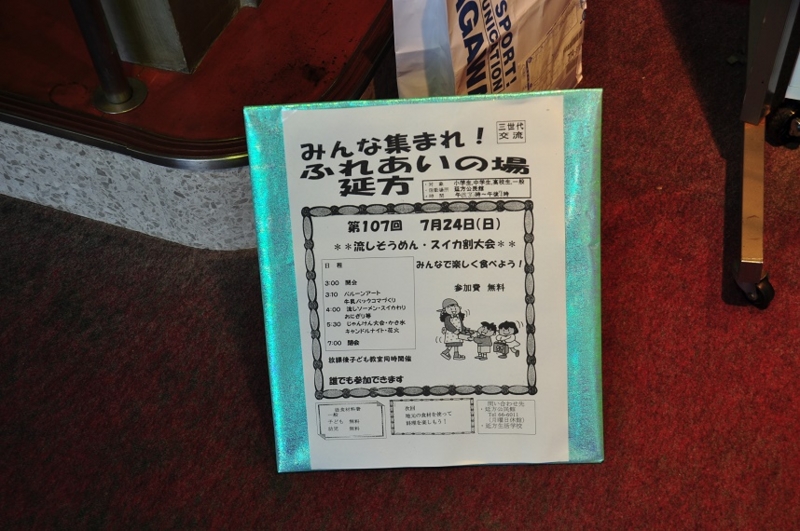 SPORT!
MUNICATION
AGAWA
三世代
交流
みんな集まれ！
ふれあいの場
延方
・対 象 小学生,中学生,高校生,一般
延方公民館
第107回 7月24日(日)
＊＊流しそうめん・スイカ割大会＊＊
日 程
みんなで楽しく食べよう！
3:00 開会
3:10 バルーンアート
牛乳パックコマづくり
4:00 流しソーメン・スイカわり
おにぎり等
5:30 じゃんけん大会・かき氷
キャンドルナイト・花火
7:00 閉会
参加費 無料
放課後子ども教室同時開催
誰でも参加できます
一般
子ども 無料
幼児 無料
地元の食材を使って
料理を楽しもう！
問い合わせ先
・延方公民館
Tel 66-6011
(月曜日休館)
・延方生活学校